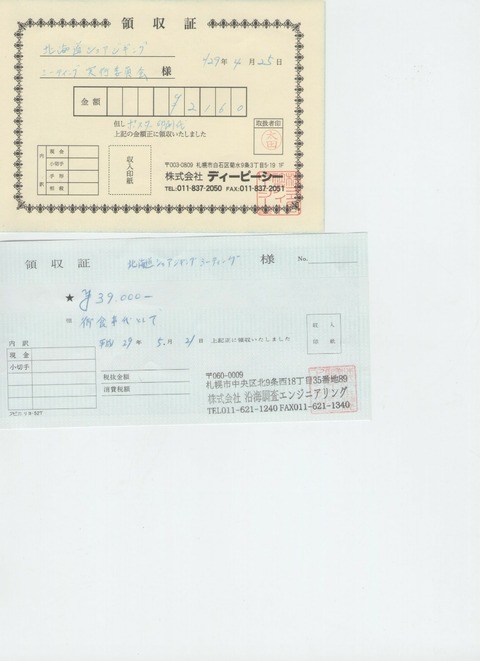 領収証
北海道シェアリング
ミーティング 実行委員会 様
H29年 4月 25日
金額 ¥2160
但し ポスター印刷代
上記の金額正に領収いたしました
取扱者印
太田
内訳
現金
小切手
手形
相殺
収入印紙
〒003-0809 札幌市白石区菊水9条3丁目5-19 1F
株式会社 ディーピーシー
TEL.011-837-2050 FAX.011-837-2051
領収証 北海道シェアリングミーティング 様 No.
★ ¥39,000-
但 御食事代として
平成 29年 5月 21日 上記正に領収いたしました
収入印紙
内訳
現金
小切手
税抜金額
消費税額
〒060-0009
札幌市中央区北9条西18丁目35番地89
株式会社 沿海調査エンジニアリング
TEL011-621-1240 FAX011-621-1340